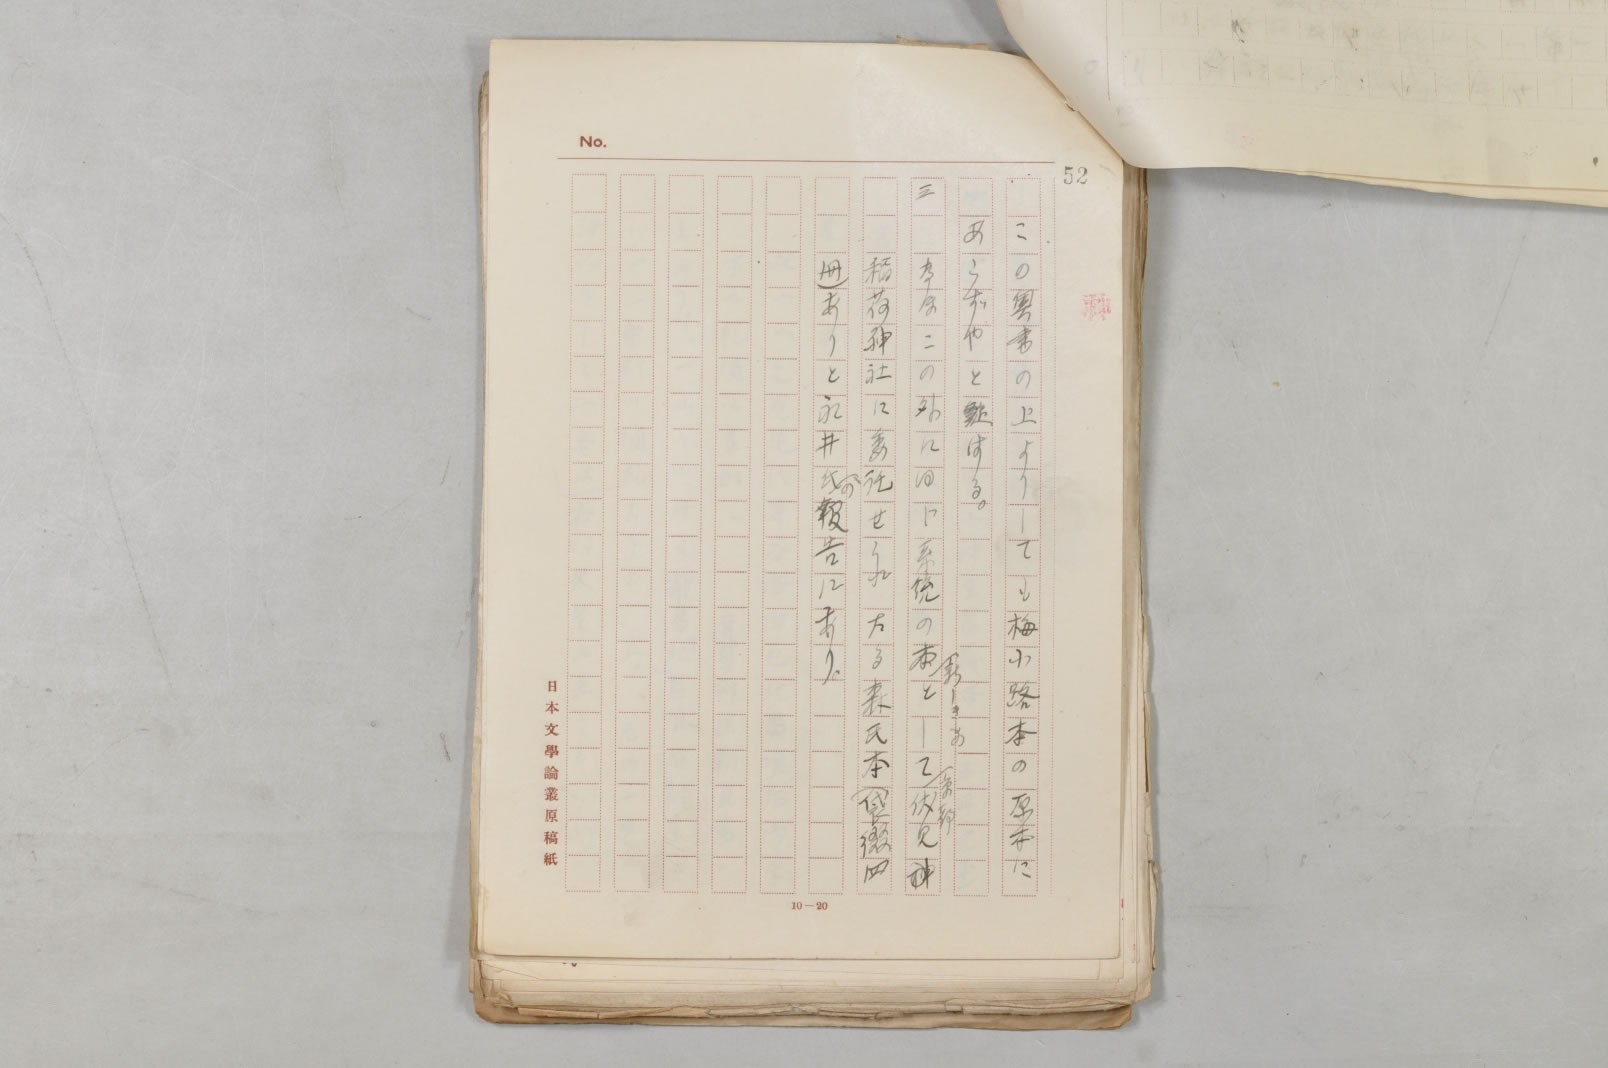 No.
52
この奥書の上よりしても梅小路本の原本に
あらずやと疑はる。
三 なほこの外に同じ系統の本として(京都伏見神
稲荷神社に委託せられたる森氏本(袋綴四
冊)ありと永井氏の報告にあり。
日本文學論叢原稿紙
10—20